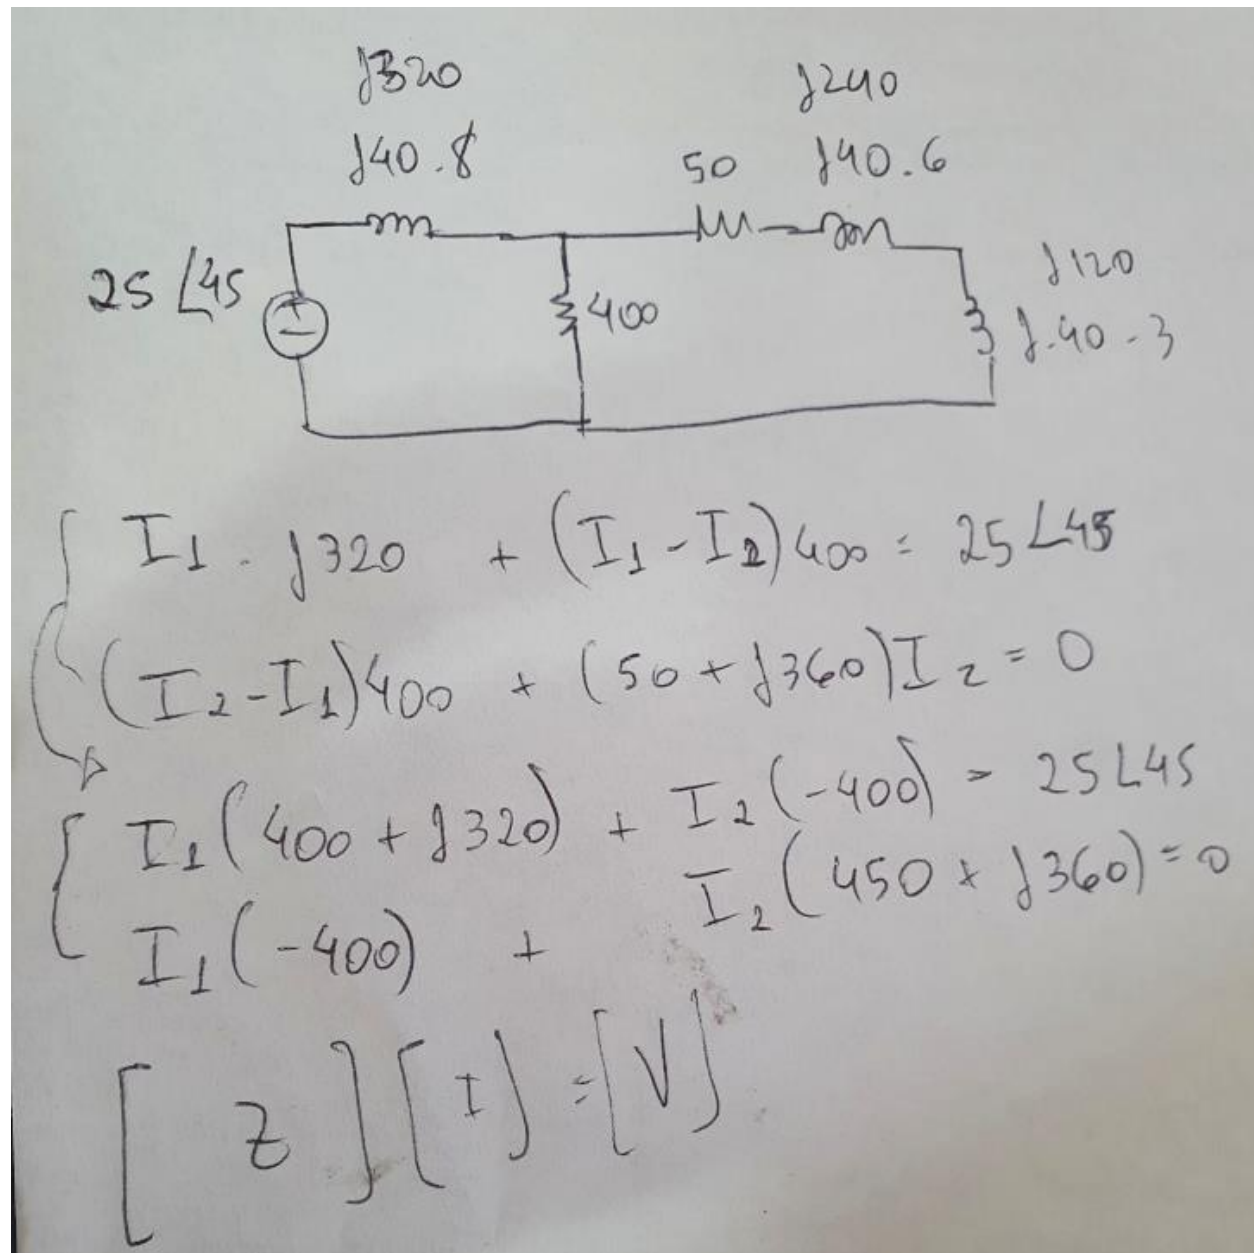 j320
j240
j40.8
50 j40.6
25 ∠45
400
j120
j.40.3
I1 . j320 + (I1 - I2)400 = 25∠45
(I2-I1)400 + (50+j360)I2 = 0
I1(400+j320) + I2(-400) = 25∠45
I1(-400) + I2(450+j360)=0
[Z][I]=[V]